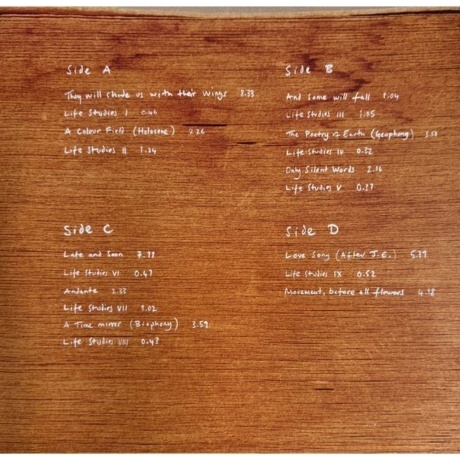 Side A
They will shade us with their wings 8.38
Life Studies I 0.46
A Colour Field (Holocene) 2.26
Life Studies II 1.24
Side B
And Some will fall 1.04
Life Studies III 1.35
The Poetry of Earth (Geophony) 3.58
Life Studies IV 0.52
Only Silent Words 2.16
Life Studies V 0.27
Side C
Late and Soon
Life Studies VI 0.47
Andante 2.38
Life Studies VII 1.02
A Time mirror (Biophony) 3.59
Life Studies VIII 0.48
Side D
Love Song (After J.E.) 5.39
Life Studies IX 0.52
Movement, before all flowers 4.18